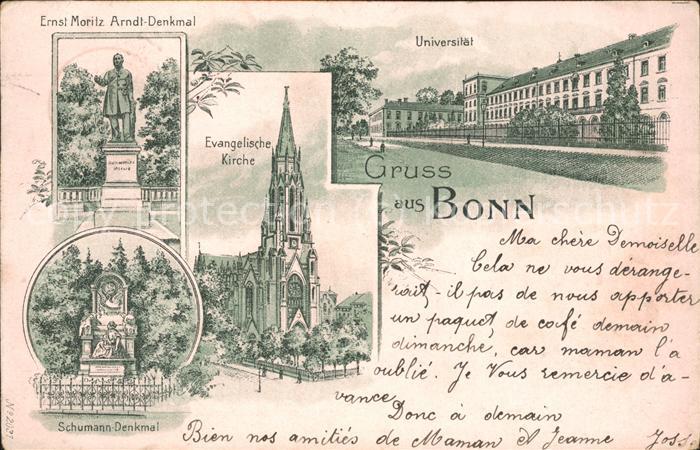 Ernst Moritz Arndt-Denkmal
Universität
Evangelische
Kirche
Gruss
aus BONN
Schumann-Denkmal
Ma chère Demoiselle
Cela ne vous dérange-
rait-il pas de nous apporter
un paquet de café demain
dimanche, car maman l'a
oublié. Je Vous remercie d'a-
vance
Donc à demain
Bien nos amitiés de Maman et Jeanne Joss.
copy protection